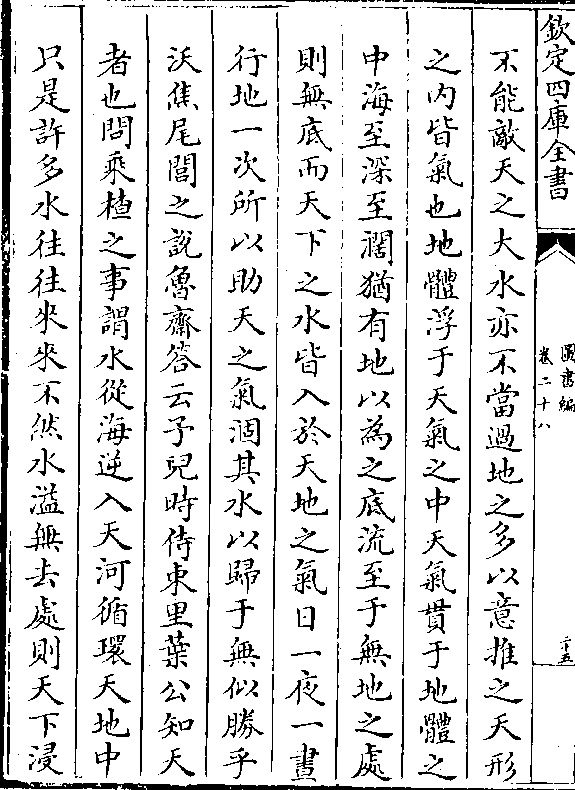 欽定四庫全書
圖書編
卷二十八
二十五
不能敵天之大水亦不當過地之多以意推之天形
之内皆氣也地體浮于天氣之中天氣貫于地體之
中海至深至濶猶有地以為之底流至于無地之處
則無底而天下之水皆入於天地之氣日一夜一晝
行地一次所以助天之氣涸其水以歸于無似勝乎
沃焦尾閭之說魯齋答云予兒時侍東里葉公知天
者也問乘槎之事謂水從海逆入天河循環天地中
只是許多水往往來來不然水溢無去處則天下浸